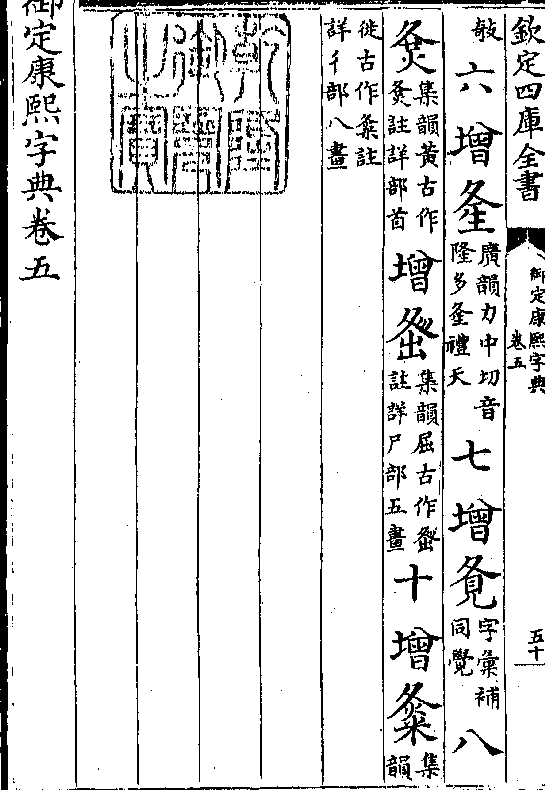 欽定四庫全書
御定康熙字典
卷五
五十
敲 六 增 夆 廣韻力中切音
隆多夆禮天 七 增 覓 字彙補
同覺 八
集韻黃古作
註詳部首 增 集韻屈古作
註詳尸部五畫 十 增 集
韻
徙古作註
詳彳部八畫
乾隆御覽之寶
御定康熙字典卷五